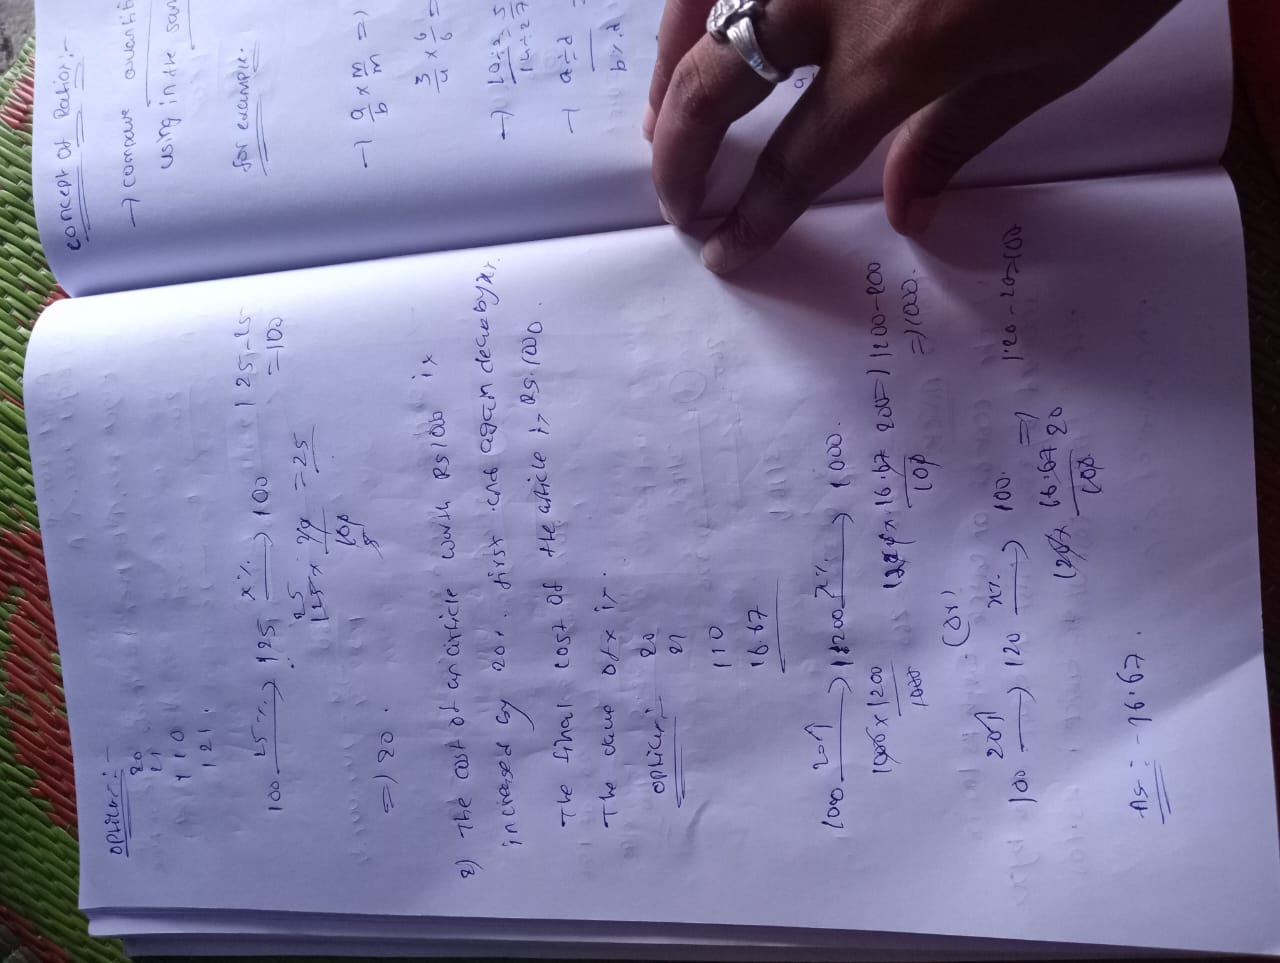 options:-
20
21
110
121.
100 25%→ 125 x%→ 100 125-25
=100
25
125 x 20/100 = 25
5
=) 20.
2) The cost of an article worth Rs 1000 is
increased by 20%. first and again decre by x%.
The final cost of the article is Rs.1000.
The value of x is.
options:- 20
21
110
16.67
1000 20↑→ 1200 x%→ 1000.
1000 x 1200
1000
16.67 200=) 1200-200
100
=)1000.
(or)
100 20↑→ 120 x%→ 100.
16.67 =) 120-20=)100
20
100
As:- 16.67.
concept of Ratio:-
→ compare
using in the
for example:-
→ a/b x m/m =)
3/4 x 6/6 =
→ 10÷2
14÷2
→ a÷d
b÷d